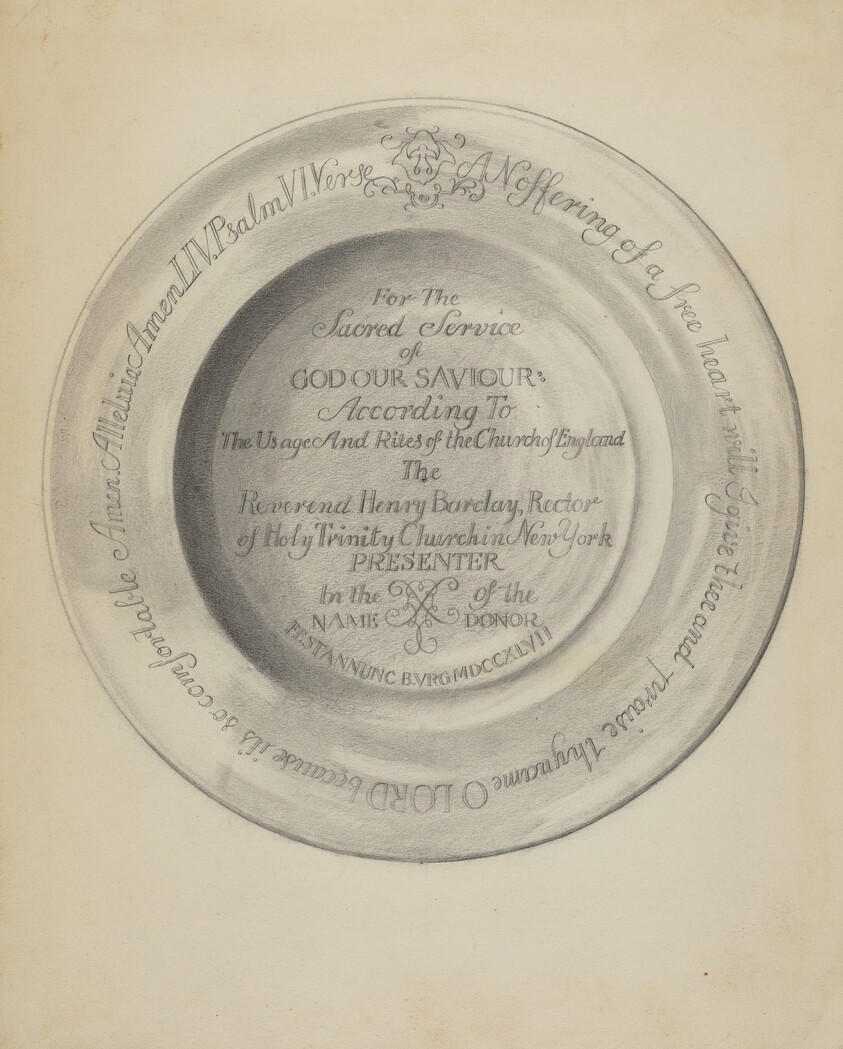 AN offering of a free heart will I give thee and praise thy name O LORD because it's so comfortable Amen. Alleluia Amen LIV. Psalm VI. Verse
For The
Sacred Service
of
GOD OUR SAVIOUR:
According To
The Usage And Rites of the Church of England
The
Reverend Henry Barclay, Rector
of Holy Trinity Church in New York
PRESENTER
In the of the
NAME DONOR
FESTANNUNC B.VRG MDCCXLVII